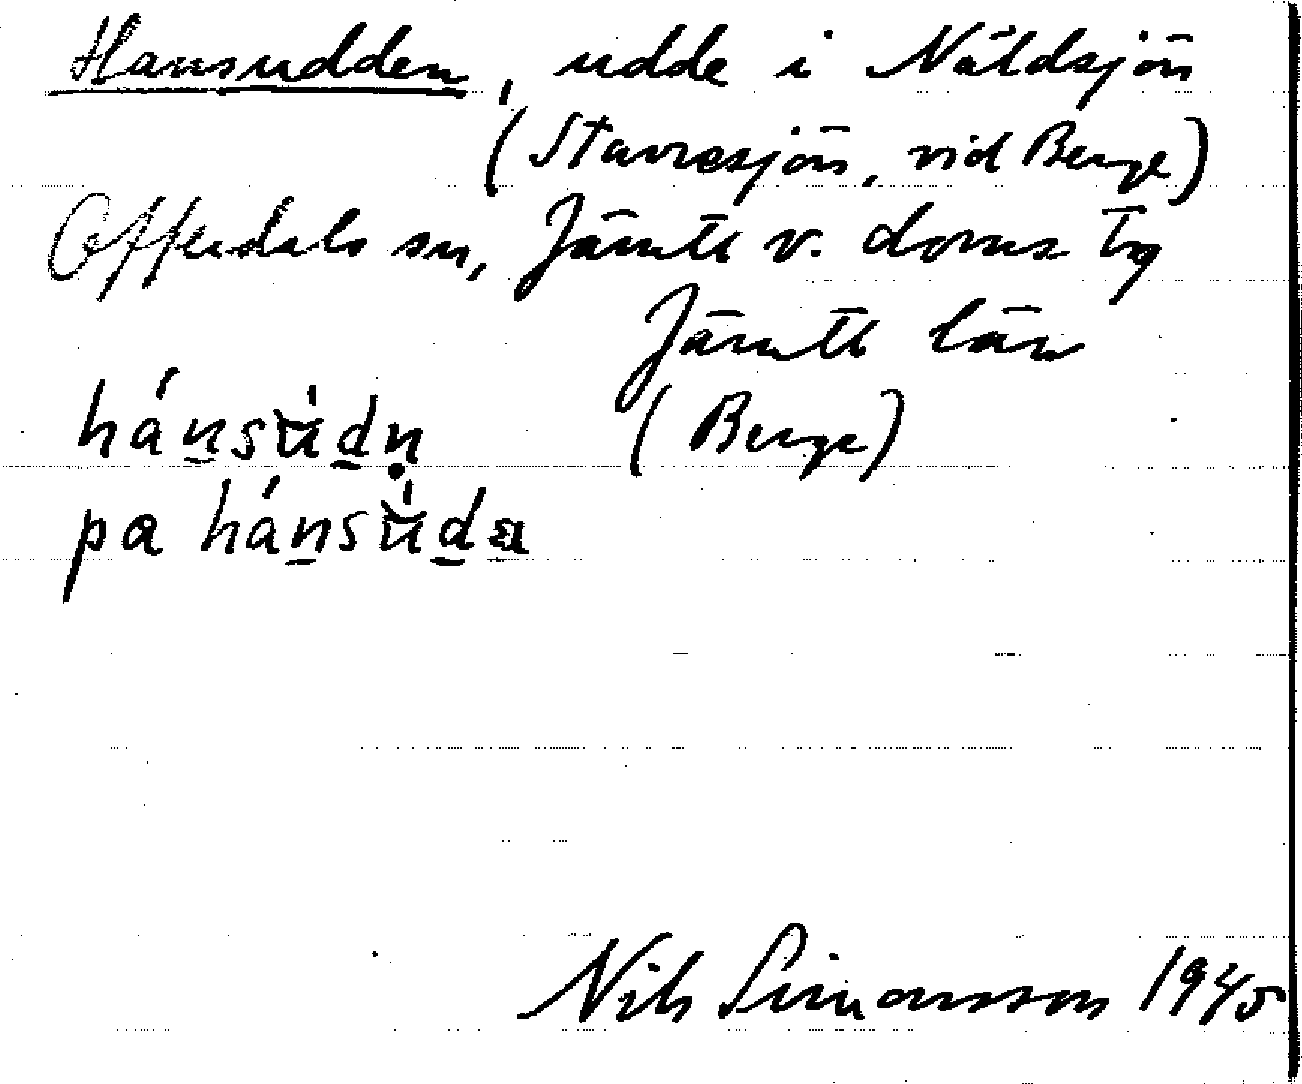 Hansudden, udde i Näldsjön
(Stavresjön, vid Berge)
Offerdals sn, Jämtl v. doms tg
Jämtl län
hánsùdn̥ (Berge)
pa hánsùda
Nils Simonsson 1945